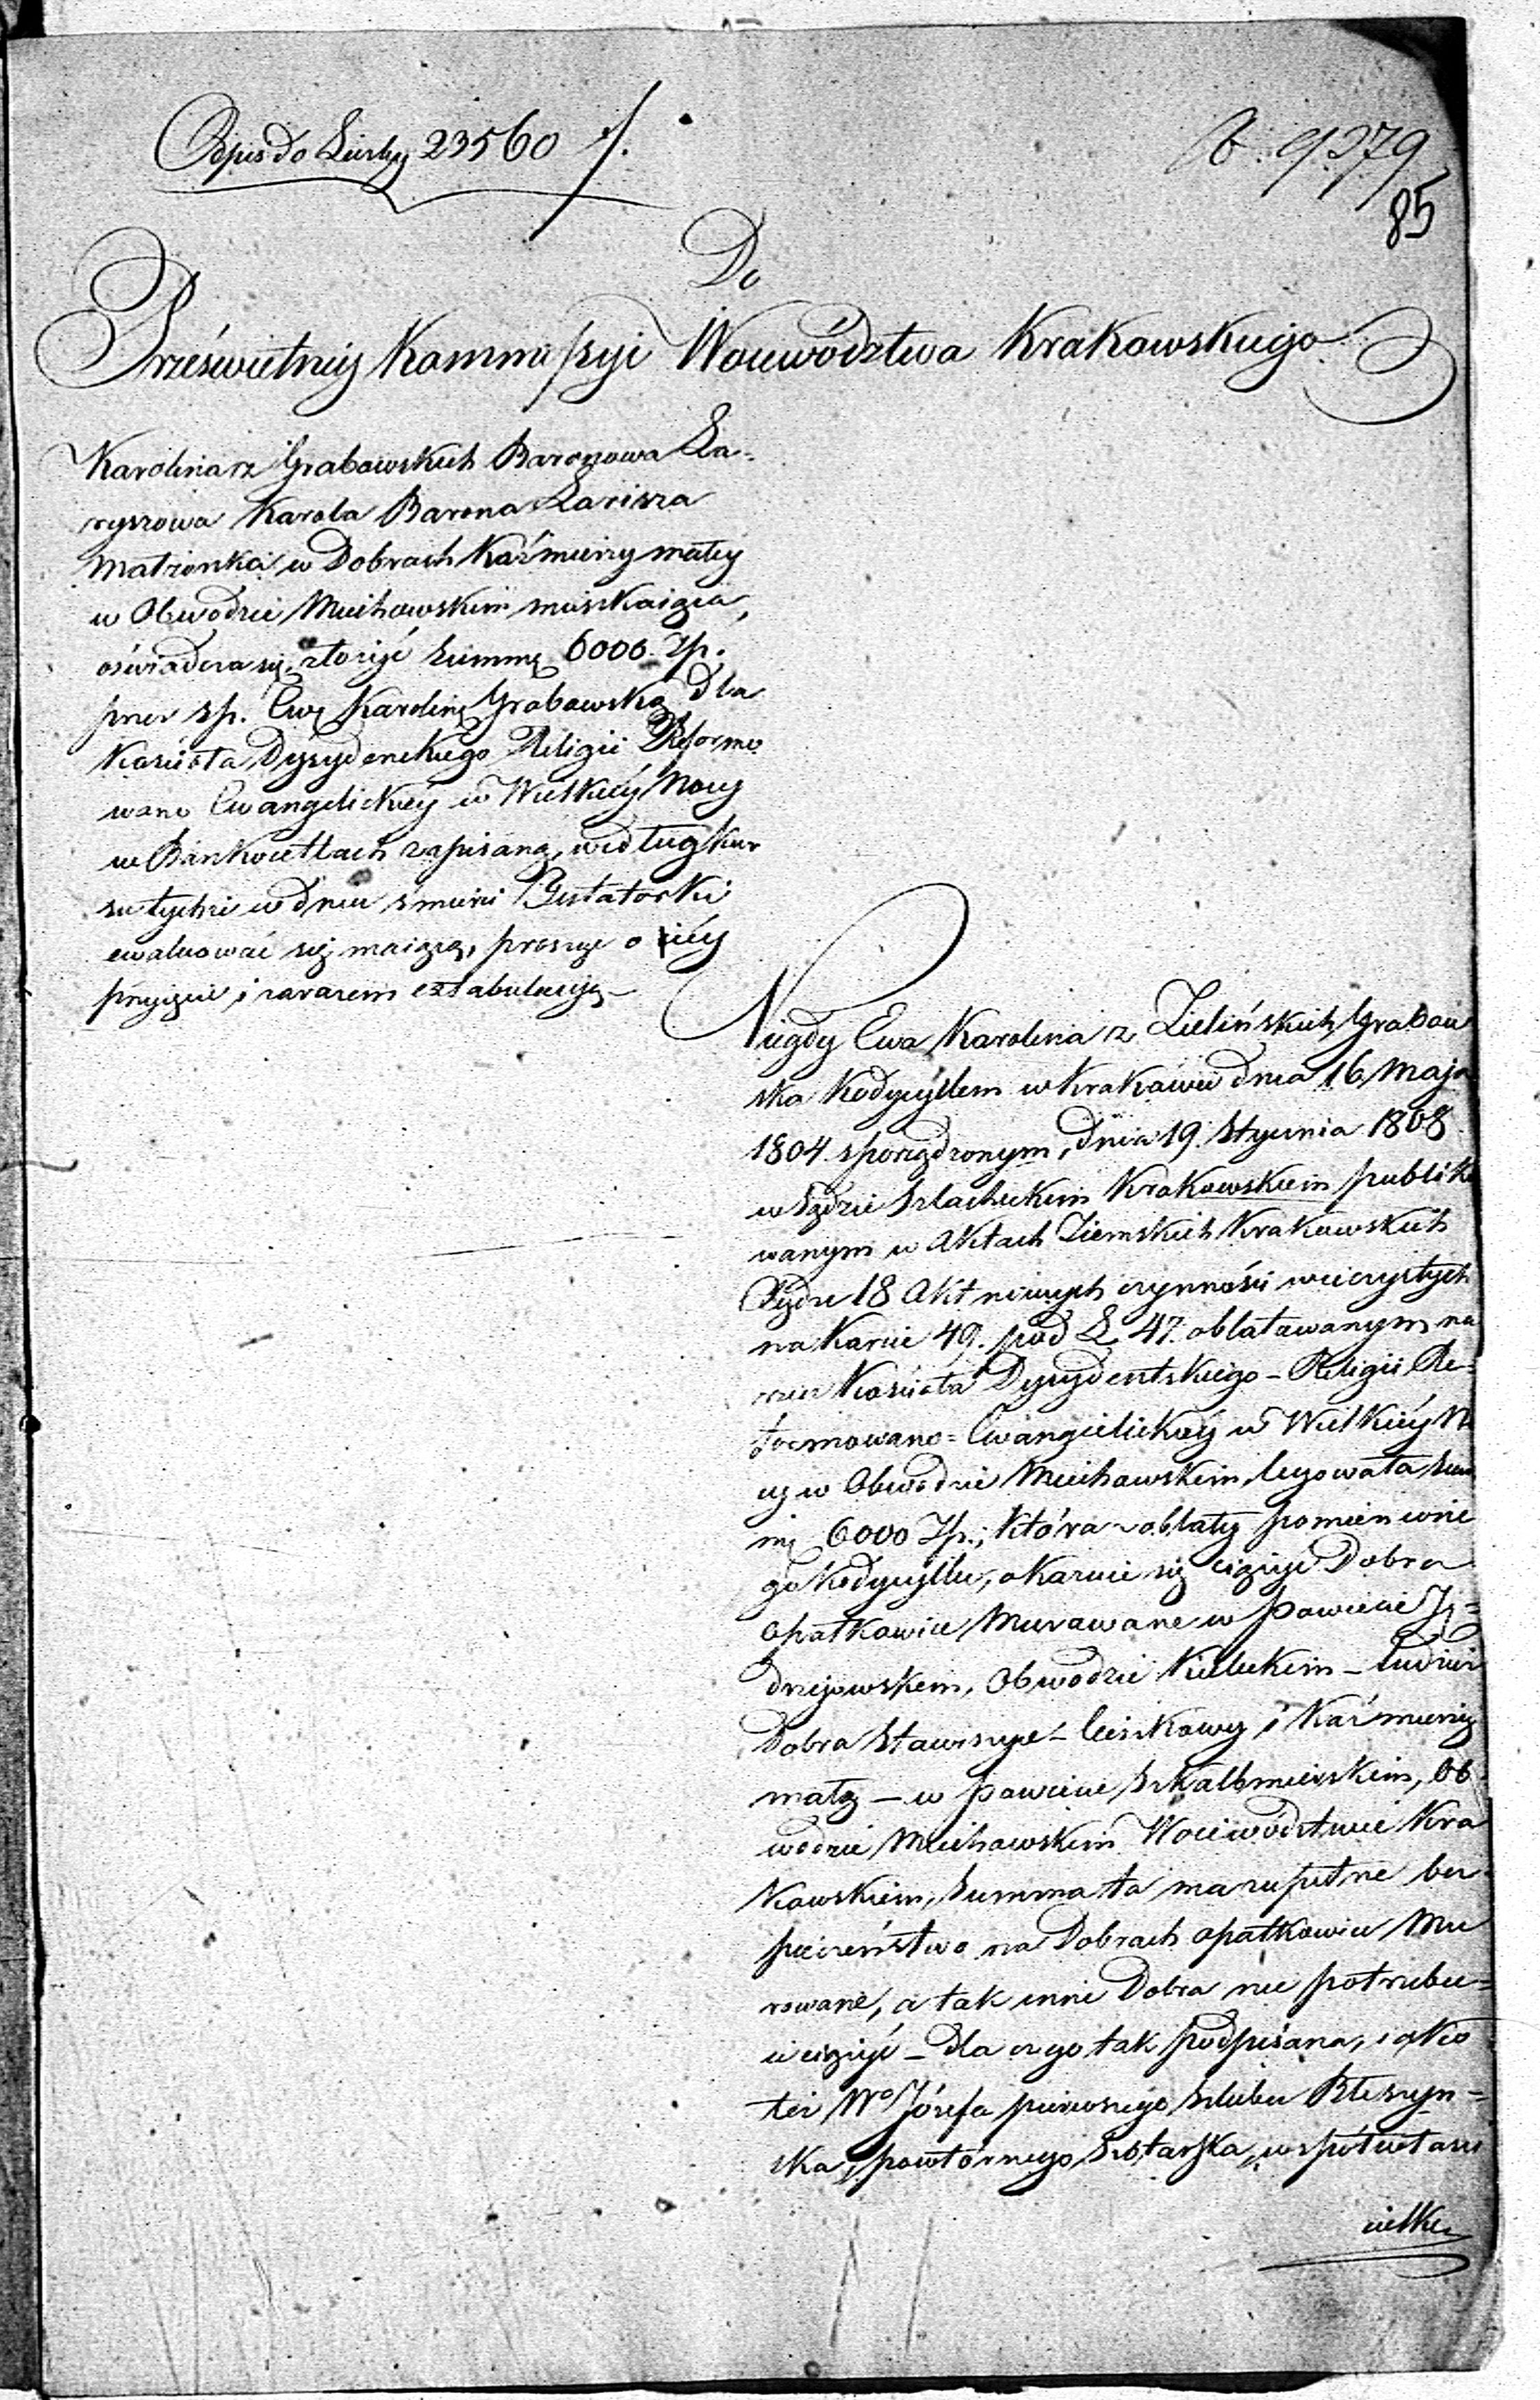 Odpis do Liczby 23560 /.
N. 9379
85
Do
Prześwietney Kommissyi Woiewództwa Krakowskiego
Karolina z Grabowskich Baronowa La-
ryszowa Karola Barona Larisza
Małżonka w Dobrach Kaźmierzy małey
w Obwodzie Miechowskim mieszkaiąca,
oświadcza się złożyć Summę 6000 Zp.
przez sp. Ewę Karolinę Grabowską dla
Kościoła Dyssydenckiego Religii Reformo
wano Ewangelickiey w Wielkiey Nocy
w Bankocetlach zapisaną, według kur
su tychże w dniu śmierci Testatorki
ewaluować się maiącą, prosząc o iéy
przyięcie i zarazem extabulacyą -
Niegdy Ewa Karolina z Zielińskich Grabow
ska Kodycyllem w Krakowie dnia 16 Maja
1804 sporządzonym, dnia 19 Stycznia 1808
w Sądzie Szlacheckim Krakowskiem publiko
wanym w Aktach Ziemskich Krakowskich
Xiędze 18 Akt nowych czynności wieczystych
na karcie 49. pod L. 47. oblatowanym, na
rzecz Kościoła Dyssydentskiego - Religii Re-
formowano = Ewangielickiéy w Wielkiéy No
cy w Obwodzie Miechowskim, legowała Sum
mę 6000 Zp.; która z oblaty pomienione
go Kodycyllu, okazuie się ciąży Dobra
Opatkowice Murowane w Powiecie Ję=
drzejowskiem, Obwodzie Kieleckim - tudzież
Dobra Stawiszyce - Cieszkowy i Kaźmierzę
małą - w powiecie Szkalbmierskim, Ob
wodzie Miechowskim Woiewództwie Kra
kowskiem, Summa ta ma zupełne bez
pieczeństwo na Dobrach Opatkowice Mu
rowane, a tak inne Dobra nie potrzebu=
ie ciążyć - dla czego tak podpisana, iako
też Wa Józefa pierwszego szlubu Bleszyń=
ska, powtórnego Szotarska, współwłaści
cielka